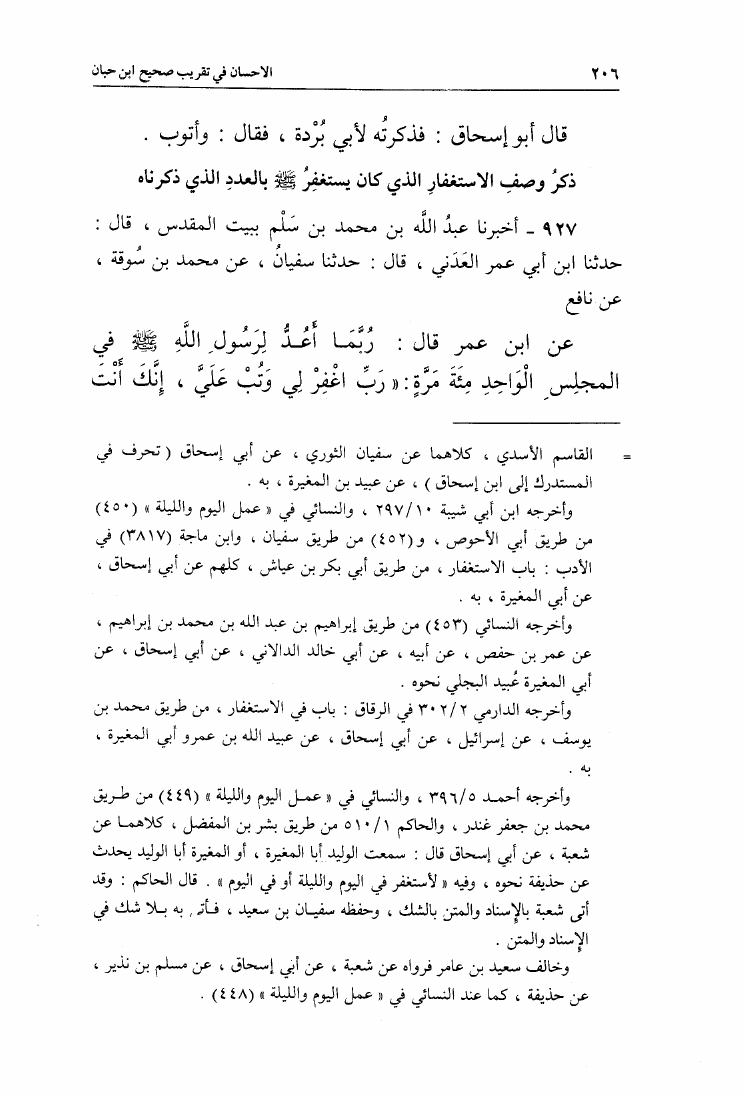 ٢٠٦ الاحسان في تقريب صحيح ابن حبان
قال أبو إسحاق : فذكرتُه لأبي بُرْدة ، فقال : وأتوب .
ذكرُ وصفِ الاستغفارِ الذي كان يستغفِرُ ﷺ بالعددِ الذي ذكرناه
٩٢٧ - أخبرنا عبدُ اللَّه بن محمد بن سَلْم ببيت المقدس ، قال :
حدثنا ابن أبي عمر العَدَني ، قال : حدثنا سفيانُ ، عن محمد بن سُوقة ،
عن نافع
عن ابن عمر قال : رُبَّمَا أَعُدُّ لِرَسُولِ اللَّهِ ﷺ في
المجلِسِ الْوَاحِدِ مِئَةَ مَرَّةٍ : « رَبِّ اغْفِرْ لِي وَتُبْ عَلَيَّ ، إِنَّكَ أَنْتَ
= القاسم الأسدي ، كلاهما عن سفيان الثوري ، عن أبي إسحاق ( تحرف في
المستدرك إلى ابن إسحاق ) ، عن عبيد بن المغيرة ، به .
وأخرجه ابن أبي شيبة ٢٩٧/١٠ ، والنسائي في « عمل اليوم والليلة » (٤٥٠)
من طريق أبي الأحوص ، و(٤٥٢) من طريق سفيان ، وابن ماجة (٣٨١٧) في
الأدب : باب الاستغفار ، من طريق أبي بكر بن عياش ، كلهم عن أبي إسحاق ،
عن أبي المغيرة ، به .
وأخرجه النسائي (٤٥٣) من طريق إبراهيم بن عبد الله بن محمد بن إبراهيم ،
عن عمر بن حفص ، عن أبيه ، عن أبي خالد الدالاني ، عن أبي إسحاق ، عن
أبي المغيرة عُبيد البجلي نحوه .
وأخرجه الدارمي ٣٠٢/٢ في الرقاق : باب في الاستغفار ، من طريق محمد بن
يوسف ، عن إسرائيل ، عن أبي إسحاق ، عن عبيد الله بن عمرو أبي المغيرة ،
به .
وأخرجه أحمد ٣٩٦/٥ ، والنسائي في « عمل اليوم والليلة » (٤٤٩) من طريق
محمد بن جعفر غندر ، والحاكم ٥١٠/١ من طريق بشر بن المفضل ، كلاهما عن
شعبة ، عن أبي إسحاق قال : سمعت الوليد أبا المغيرة ، أو المغيرة أبا الوليد يحدث
عن حذيفة نحوه ، وفيه « لأستغفر في اليوم والليلة أو في اليوم » . قال الحاكم : وقد
أتى شعبة بالإسناد والمتن بالشك ، وحفظه سفيان بن سعيد ، به بلا شك في
الإسناد والمتن .
وخالف سعيد بن عامر فرواه عن شعبة ، عن أبي إسحاق ، عن مسلم بن نذير ،
عن حذيفة ، كما عند النسائي في « عمل اليوم والليلة » (٤٤٨) .